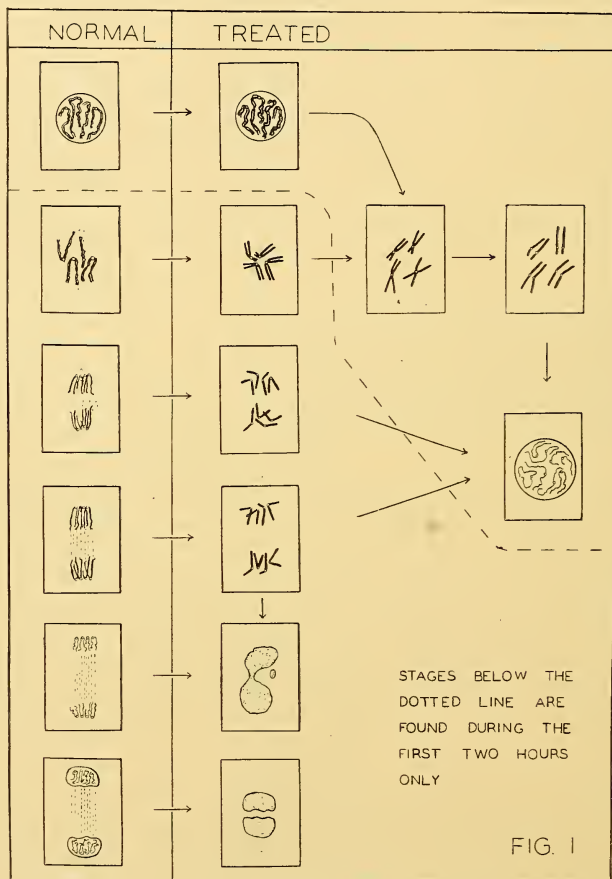 NORMAL
TREATED
STAGES BELOW THE
DOTTED LINE ARE
FOUND DURING THE
FIRST TWO HOURS
ONLY
FIG. 1